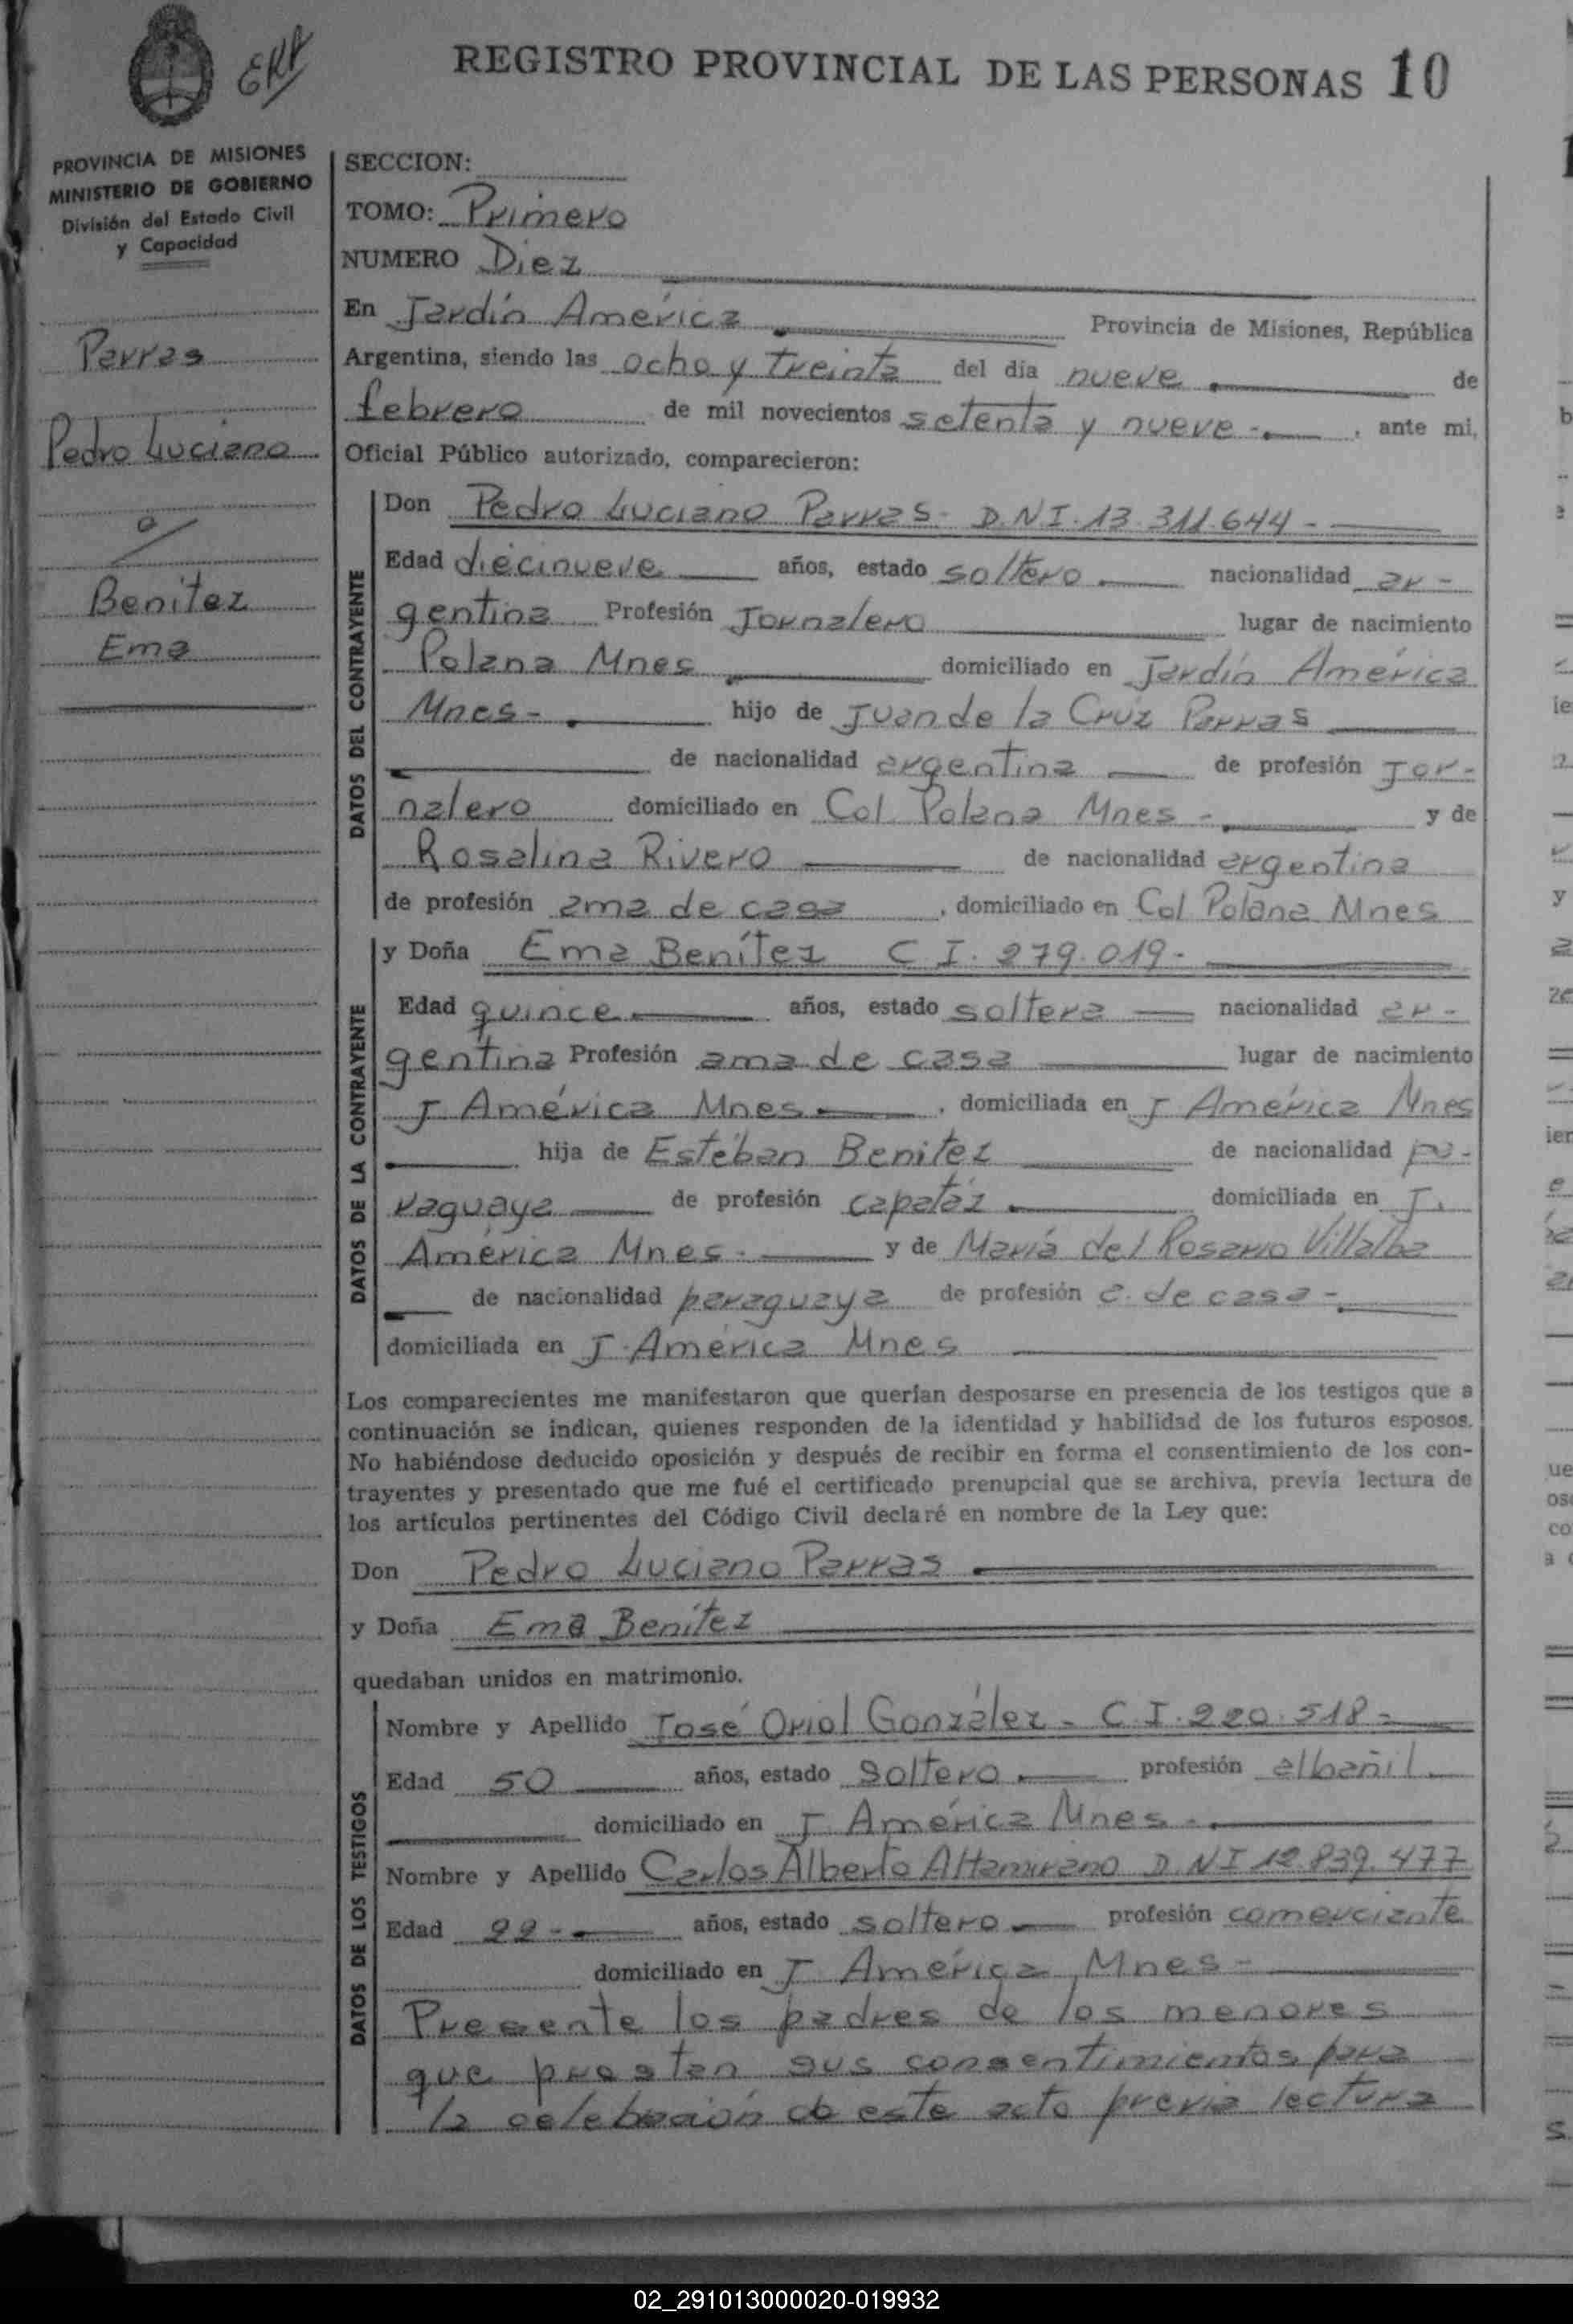 ERA
REGISTRO PROVINCIAL DE LAS PERSONAS 10
PROVINCIA DE MISIONES
MINISTERIO DE GOBIERNO
División del Estado Civil
y Capacidad
Parras
Pedro Luciano
a/
Benitez
Ema
SECCION:
TOMO: Primero
NUMERO Diez
En Jardín América Provincia de Misiones, República
Argentina, siendo las ocho y treinta del día nueve de
febrero de mil novecientos setenta y nueve -. , ante mi,
Oficial Público autorizado, comparecieron:
DATOS DEL CONTRAYENTE
Don Pedro Luciano Parras - D.N.I. 13.311.644 -
Edad diecinueve años, estado soltero nacionalidad ar-
gentina Profesión Jornalero lugar de nacimiento
Polana Mnes domiciliado en Jardín América
Mnes-. hijo de Juan de la Cruz Parras
de nacionalidad argentina de profesión Jor-
nalero domiciliado en Col. Polana Mnes - y de
Rosalina Rivero de nacionalidad argentina
de profesión ama de casa , domiciliado en Col Polana Mnes
DATOS DE LA CONTRAYENTE
y Doña Ema Benítez C I. 279.019-
Edad quince años, estado soltera nacionalidad ar-
gentina Profesión ama de casa lugar de nacimiento
J América Mnes , domiciliada en J América Mnes
hija de Estéban Benitez de nacionalidad pa-
raguaya de profesión capatáz domiciliada en J.
América Mnes. y de María del Rosario Villalba
de nacionalidad paraguaya de profesión a. de casa -
domiciliada en J. América Mnes
Los comparecientes me manifestaron que querían desposarse en presencia de los testigos que a
continuación se indican, quienes responden de la identidad y habilidad de los futuros esposos.
No habiéndose deducido oposición y después de recibir en forma el consentimiento de los con-
trayentes y presentado que me fué el certificado prenupcial que se archiva, previa lectura de
los artículos pertinentes del Código Civil declaré en nombre de la Ley que:
Don Pedro Luciano Parras
y Doña Ema Benítez
quedaban unidos en matrimonio.
DATOS DE LOS TESTIGOS
Nombre y Apellido José Oriol González - C.I. 220.518-
Edad 50 años, estado Soltero profesión albañil
domiciliado en J América Mnes -
Nombre y Apellido Carlos Alberto Altamirano D.N.I 12.839.477
Edad 22- años, estado soltero profesión comerciante
domiciliado en J América Mnes -
Presente los padres de los menores
que prestan sus consentimientos para
la celebración de este acto previa lectura
02_291013000020-019932